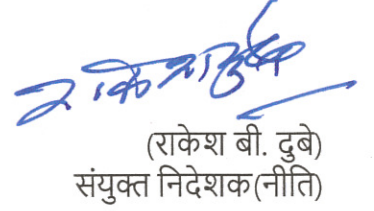 (राकेश बी. दुबे)
संयुक्त निदेशक(नीति)